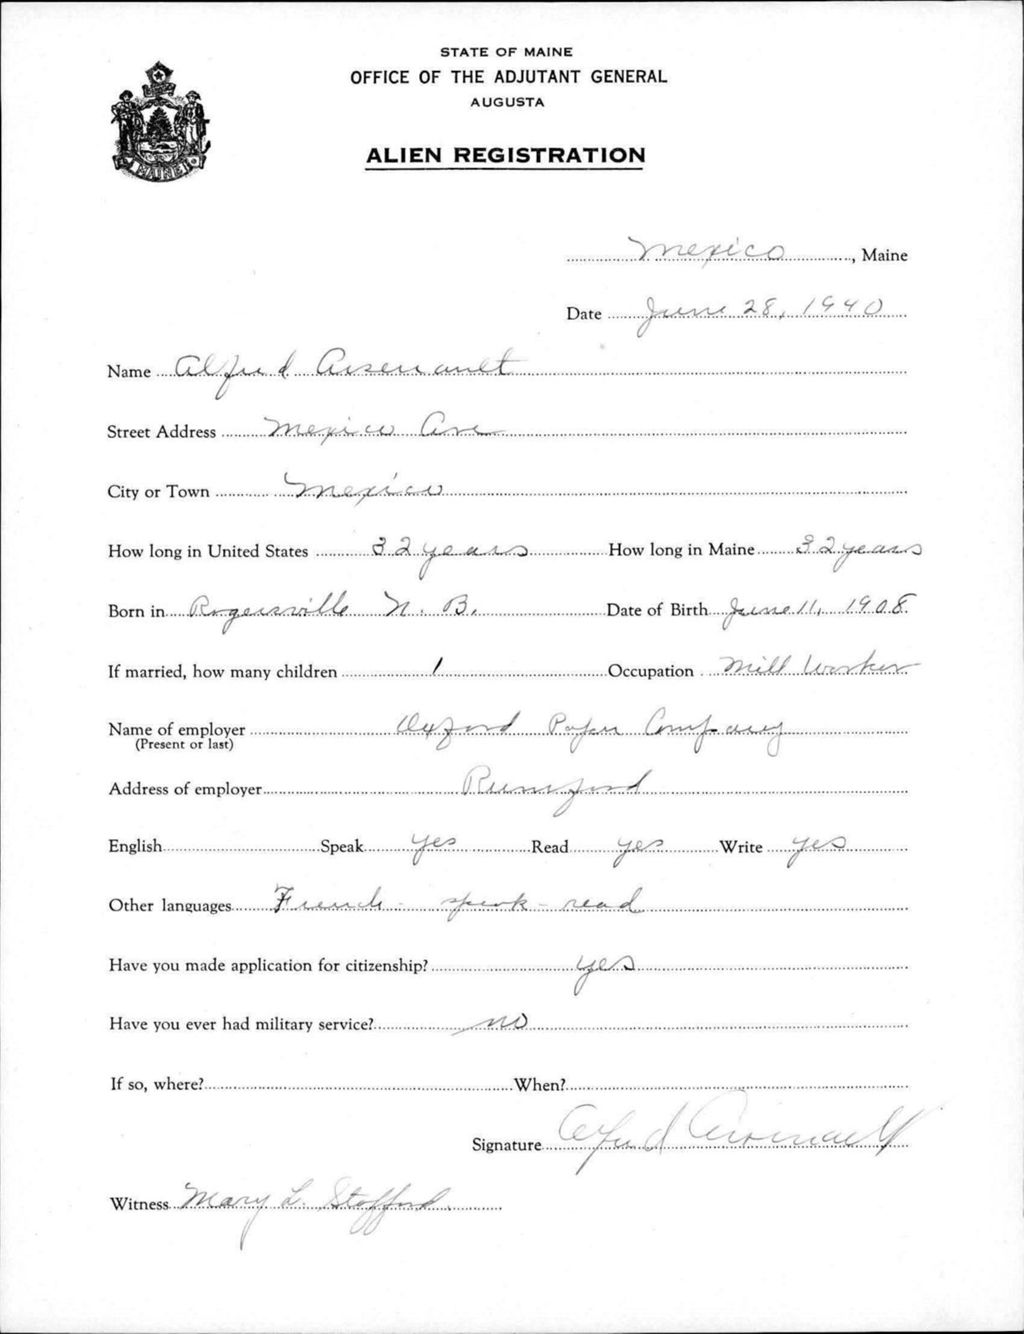 STATE OF MAINE
OFFICE OF THE ADJUTANT GENERAL
AUGUSTA
ALIEN REGISTRATION
MAINE
Mexico, Maine
Date June 28, 1940
Name Alfred Arsenault
Street Address Mexico Ave
City or Town Mexico
How long in United States 32 years How long in Maine 32 years
Born in Rogersville N. B. Date of Birth June 11, 1908
If married, how many children 1 Occupation Mill Worker
Name of employer Oxford Paper Company
(Present or last)
Address of employer Rumford
English Speak yes Read yes Write yes
Other languages French - speak - read
Have you made application for citizenship? yes
Have you ever had military service? no
If so, where? When?
Signature Alfred Arsenault
Witness Mary L. Stafford